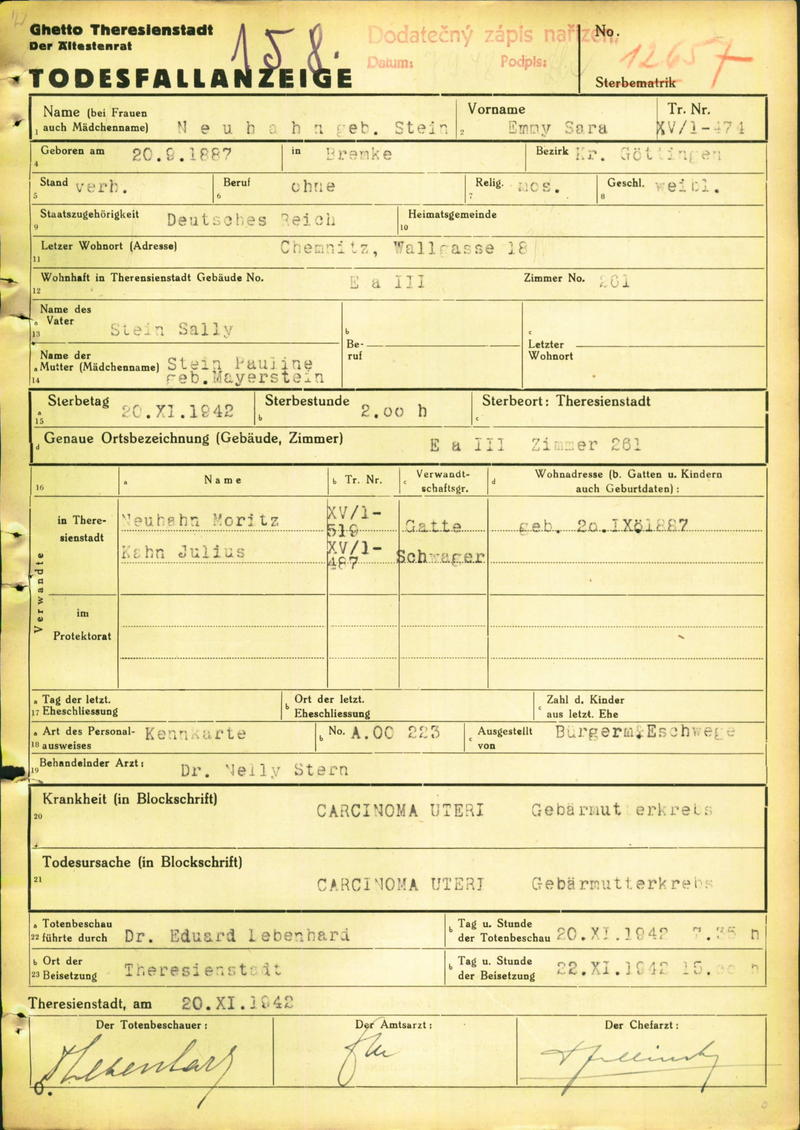 Ghetto Theresienstadt
Der Ältestenrat
158.
Dodatečný zápis nařízen,
Datum: Podpis:
No.
1265
Sterbematrik
TODESFALLANZEIGE
Name (bei Frauen Vorname Tr. Nr.
1 auch Mädchenname) Neuhahn geb. Stein 2 Emmy Sara XV/1-474
4 Geboren am 20.9.1887 in Bremke Bezirk Kr. Göttingen
5 Stand verh. 6 Beruf ohne 7 Relig. mos. 8 Geschl. weibl.
9 Staatszugehörigkeit Deutsches Reich 10 Heimatsgemeinde
11 Letzer Wohnort (Adresse) Chemnitz, Wallgasse 18
12 Wohnhaft in Therensienstadt Gebäude No. E a III Zimmer No. 261
Name des
a Vater
13 Stein Sally
b Beruf
c Letzter Wohnort
Name der
a Mutter (Mädchenname) Stein Pauline
14 geb.Mayerstein
a 15 Sterbetag 20.XI.1942 b Sterbestunde 2.00 h c Sterbeort: Theresienstadt
d Genaue Ortsbezeichnung (Gebäude, Zimmer) E a III Zimmer 261
16 a Name b Tr. Nr. c Verwandt-
schaftsgr. d Wohnadresse (b. Gatten u. Kindern
auch Geburtdaten) :
Verwandte
in There-
sienstadt
Neuhahn Moritz XV/1-
519 Gatte geb. 20.IX.1887
Kahn Julius XV/1-
487 Schwager
im
Protektorat
a Tag der letzt. b Ort der letzt. c Zahl d. Kinder
17 Eheschliessung Eheschliessung aus letzt. Ehe
a Art des Personal- Kennkarte b No. A.00 223 c Ausgestellt Bürgerm.Eschwege
18 ausweises von
19 Behandelnder Arzt: Dr. Nelly Stern
Krankheit (in Blockschrift)
20 CARCINOMA UTERI Gebärmut erkrebs
Todesursache (in Blockschrift)
21 CARCINOMA UTERI Gebärmutterkrebs
a Totenbeschau b Tag u. Stunde
22 führte durch Dr. Eduard Lebenhard der Totenbeschau 20.XI.1942 h
b Ort der b Tag u. Stunde
23 Beisetzung Theresienstadt der Beisetzung 22.XI.1942 15. h
Theresienstadt, am 20.XI.1942
Der Totenbeschauer: Der Amtsarzt: Der Chefarzt: